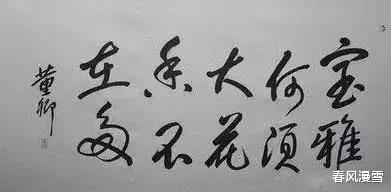 室雅
何须
大花
香不
在多
董卿
春风漫雪